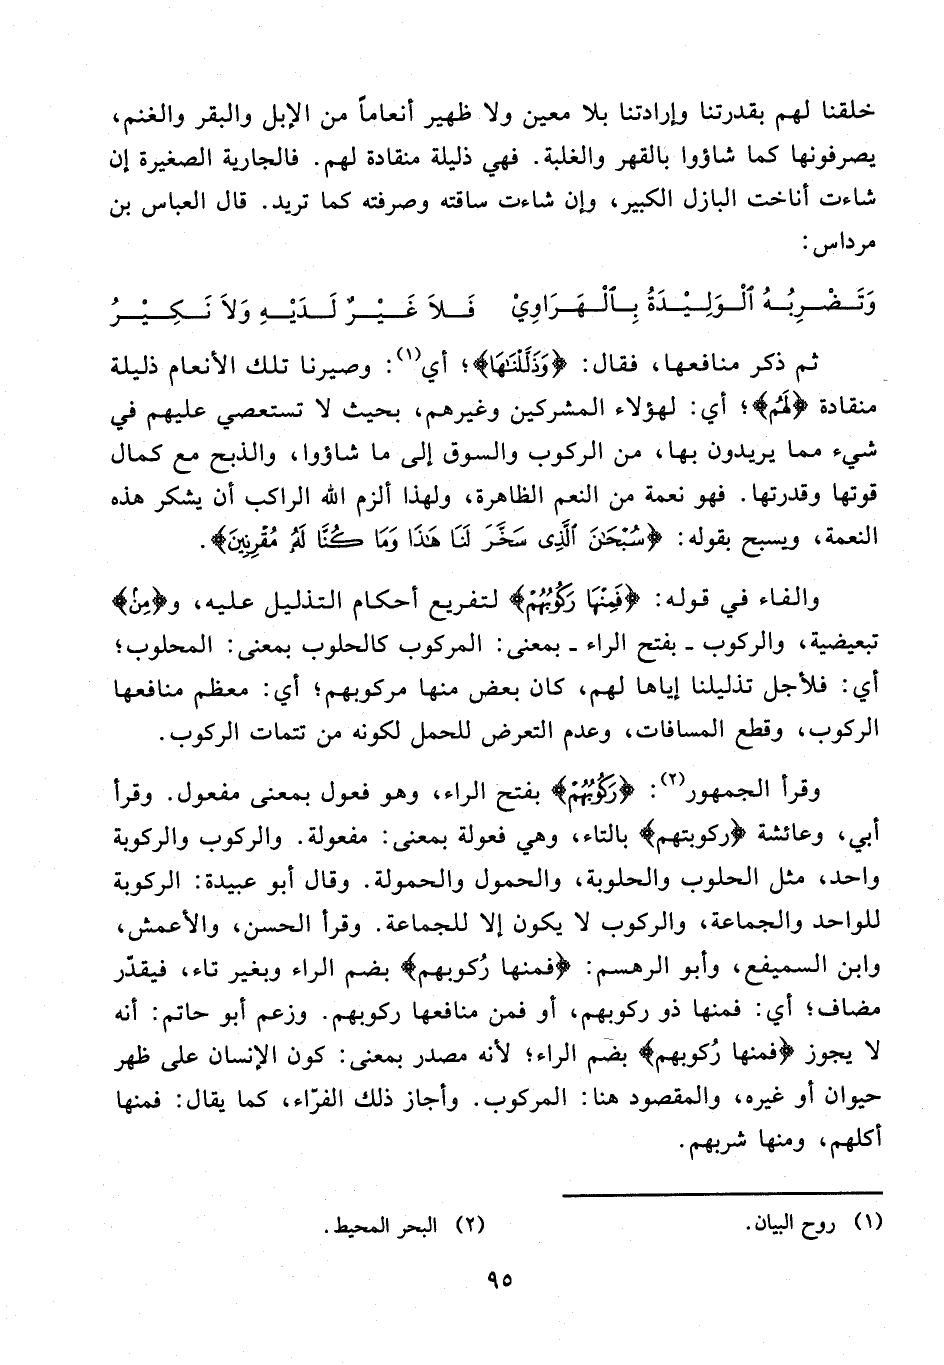 خلقنا لهم بقدرتنا وإرادتنا بلا معين ولا ظهير أنعاماً من الإبل والبقر والغنم،
يصرفونها كما شاؤوا بالقهر والغلبة. فهي ذليلة منقادة لهم. فالجارية الصغيرة إن
شاءت أناخت البازل الكبير، وإن شاءت ساقته وصرفته كما تريد. قال العباس بن
مرداس:
وَتَضْرِبُهُ ٱلْوَلِيْدَةُ بِٱلْهَرَاوِيْ فَلاَ غَيْرٌ لَدَيْهِ وَلاَ نَكِيْرُ
ثم ذكر منافعها، فقال: ﴿وَذَلَّلْنَٰهَا﴾؛ أي(١): وصيرنا تلك الأنعام ذليلة
منقادة ﴿لَهُمْ﴾؛ أي: لهؤلاء المشركين وغيرهم، بحيث لا تستعصي عليهم في
شيء مما يريدون بها، من الركوب والسوق إلى ما شاؤوا، والذبح مع كمال
قوتها وقدرتها. فهو نعمة من النعم الظاهرة، ولهذا ألزم الله الراكب أن يشكر هذه
النعمة، ويسبح بقوله: ﴿سُبْحَٰنَ ٱلَّذِى سَخَّرَ لَنَا هَٰذَا وَمَا كُنَّا لَهُ مُقْرِنِينَ﴾.
والفاء في قوله: ﴿فَمِنْهَا رَكُوبُهُمْ﴾ لتفريع أحكام التذليل عليه، و﴿مِنْ﴾
تبعيضية، والركوب ـ بفتح الراء ـ بمعنى: المركوب كالحلوب بمعنى: المحلوب؛
أي: فلأجل تذليلنا إياها لهم، كان بعض منها مركوبهم؛ أي: معظم منافعها
الركوب، وقطع المسافات، وعدم التعرض للحمل لكونه من تتمات الركوب.
وقرأ الجمهور(٢): ﴿رَكُوبُهُمْ﴾ بفتح الراء، وهو فعول بمعنى مفعول. وقرأ
أبي، وعائشة ﴿ركوبتهم﴾ بالتاء، وهي فعولة بمعنى: مفعولة. والركوب والركوبة
واحد، مثل الحلوب والحلوبة، والحمول والحمولة. وقال أبو عبيدة: الركوبة
للواحد والجماعة، والركوب لا يكون إلا للجماعة. وقرأ الحسن، والأعمش،
وابن السميفع، وأبو الرهسم: ﴿فمنها رُكوبهم﴾ بضم الراء وبغير تاء، فيقدّر
مضاف؛ أي: فمنها ذو ركوبهم، أو فمن منافعها ركوبهم. وزعم أبو حاتم: أنه
لا يجوز ﴿فمنها رُكوبهم﴾ بضم الراء؛ لأنه مصدر بمعنى: كون الإنسان على ظهر
حيوان أو غيره، والمقصود هنا: المركوب. وأجاز ذلك الفرّاء، كما يقال: فمنها
أكلهم، ومنها شربهم.
(١) روح البيان.
(٢) البحر المحيط.
٩٥